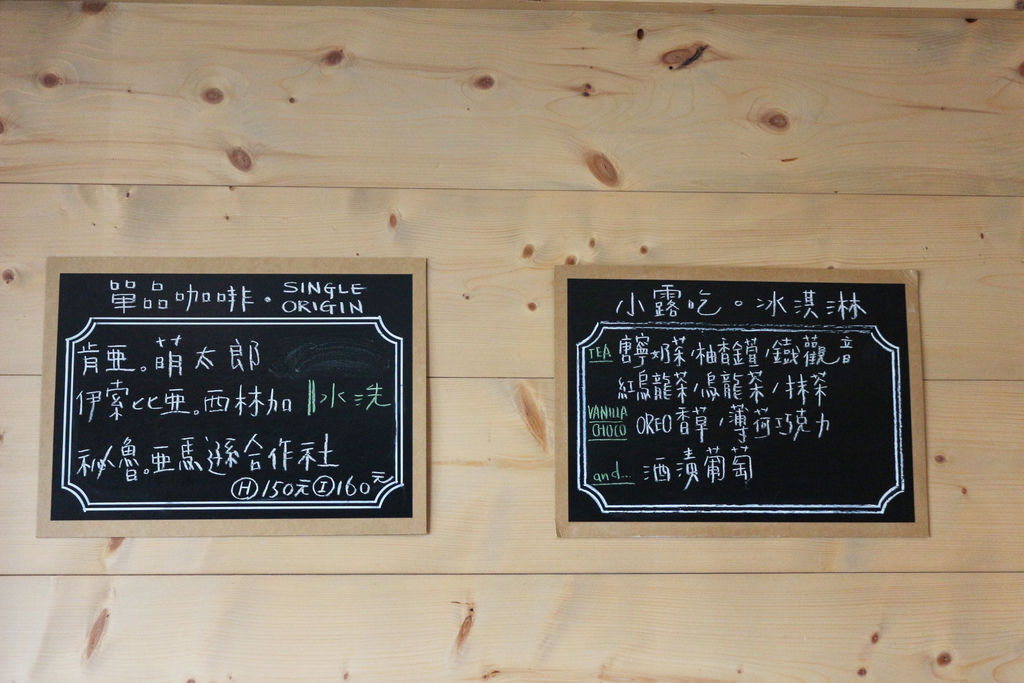 單品咖啡・SINGLE ORIGIN
肯亞。萌太郎
伊索比亞。西林加 水洗
祕魯。亞馬遜合作社
H 150元 I 160元
小露吃。冰淇淋
TEA 唐寧奶茶/柚香鍹/鐵觀音
紅烏龍茶/烏龍茶/抹茶
VANILLA CHOCO OREO香草/薄荷巧克力
and... 酒漬葡萄